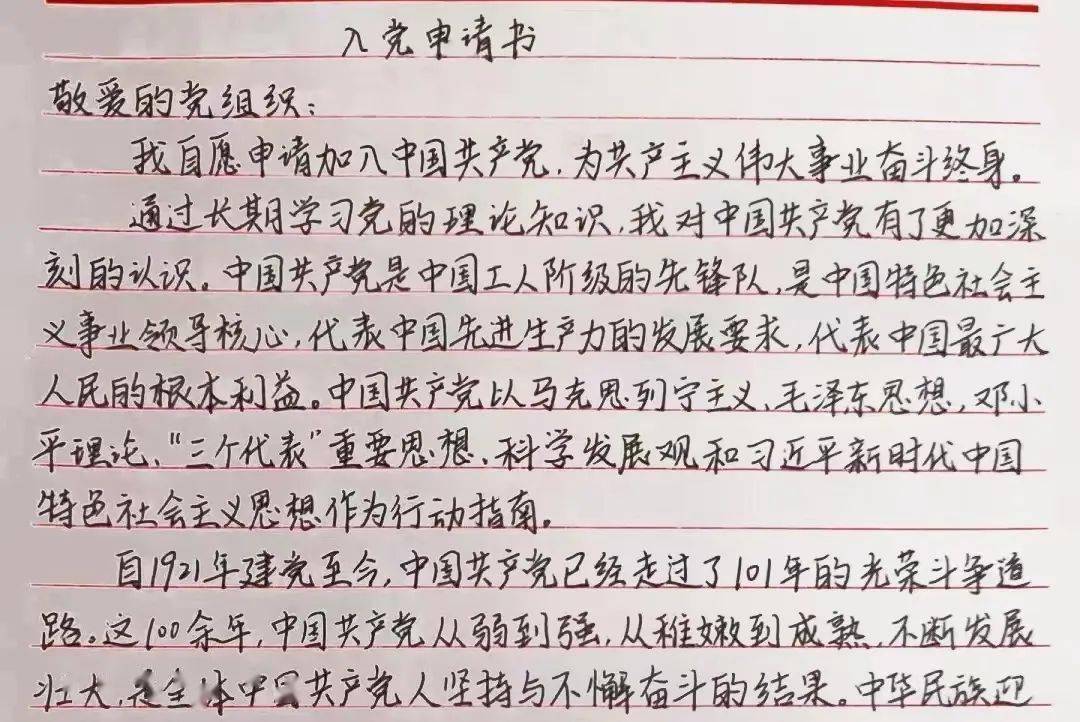 入党申请书
敬爱的党组织：
我自愿申请加入中国共产党，为共产主义伟大事业奋斗终身。
通过长期学习党的理论知识，我对中国共产党有了更加深
刻的认识。中国共产党是中国工人阶级的先锋队，是中国特色社会主
义事业领导核心，代表中国先进生产力的发展要求，代表中国最广大
人民的根本利益。中国共产党以马克思列宁主义、毛泽东思想，邓小
平理论、“三个代表”重要思想、科学发展观和习近平新时代中国
特色社会主义思想作为行动指南。
自1921年建党至今，中国共产党已经走过了101年的光荣斗争道
路。这100余年，中国共产党从弱到强，从稚嫩到成熟，不断发展
壮大，是全体中国共产党人坚持与不懈奋斗的结果。中华民族迎